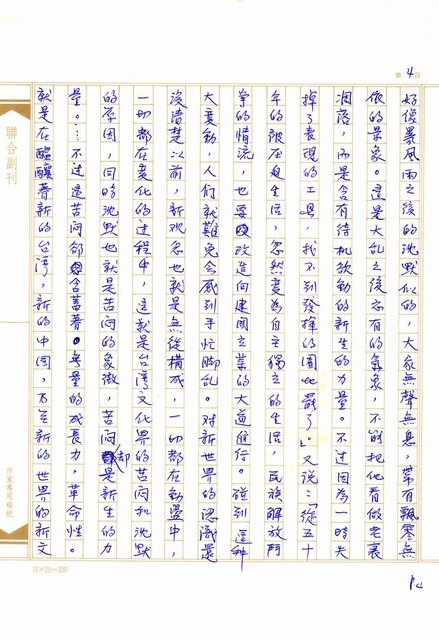 第4頁
好像暴風雨之後的沈默似的，大家無聲無息，帶有飄零無
依的景象。這是大亂之後必有的氣象，不能把他看做老衰
凋落，而是含有待机欲動的新生的力量。不过因為一時失
掉了表現的工具，找不到發揮的園地罷了」又說：「從五十
年的被压迫生活，忽然変為自主獨立的生活，民族解放鬥
爭的情流，也要改造向建国立業的大道進行。碰到這种
大変動，人们就難免会感到手忙脚乱。对新世界的認識還
沒清楚以前，新观念也就是無從構成，一切都在動盪中，
一切都在変化的过程中，這就是台湾文化界的苦悶和沈默
的原因，同時沈默也就是苦悶的象徵，苦悶卻是新生的力
量。…不过這苦悶卻含蓄著無量的成長力，革命性。
就是在醞釀著新的台湾，新的中国，乃至新的世界的新文
聯合副刊
作家專用稿紙
12×25=300